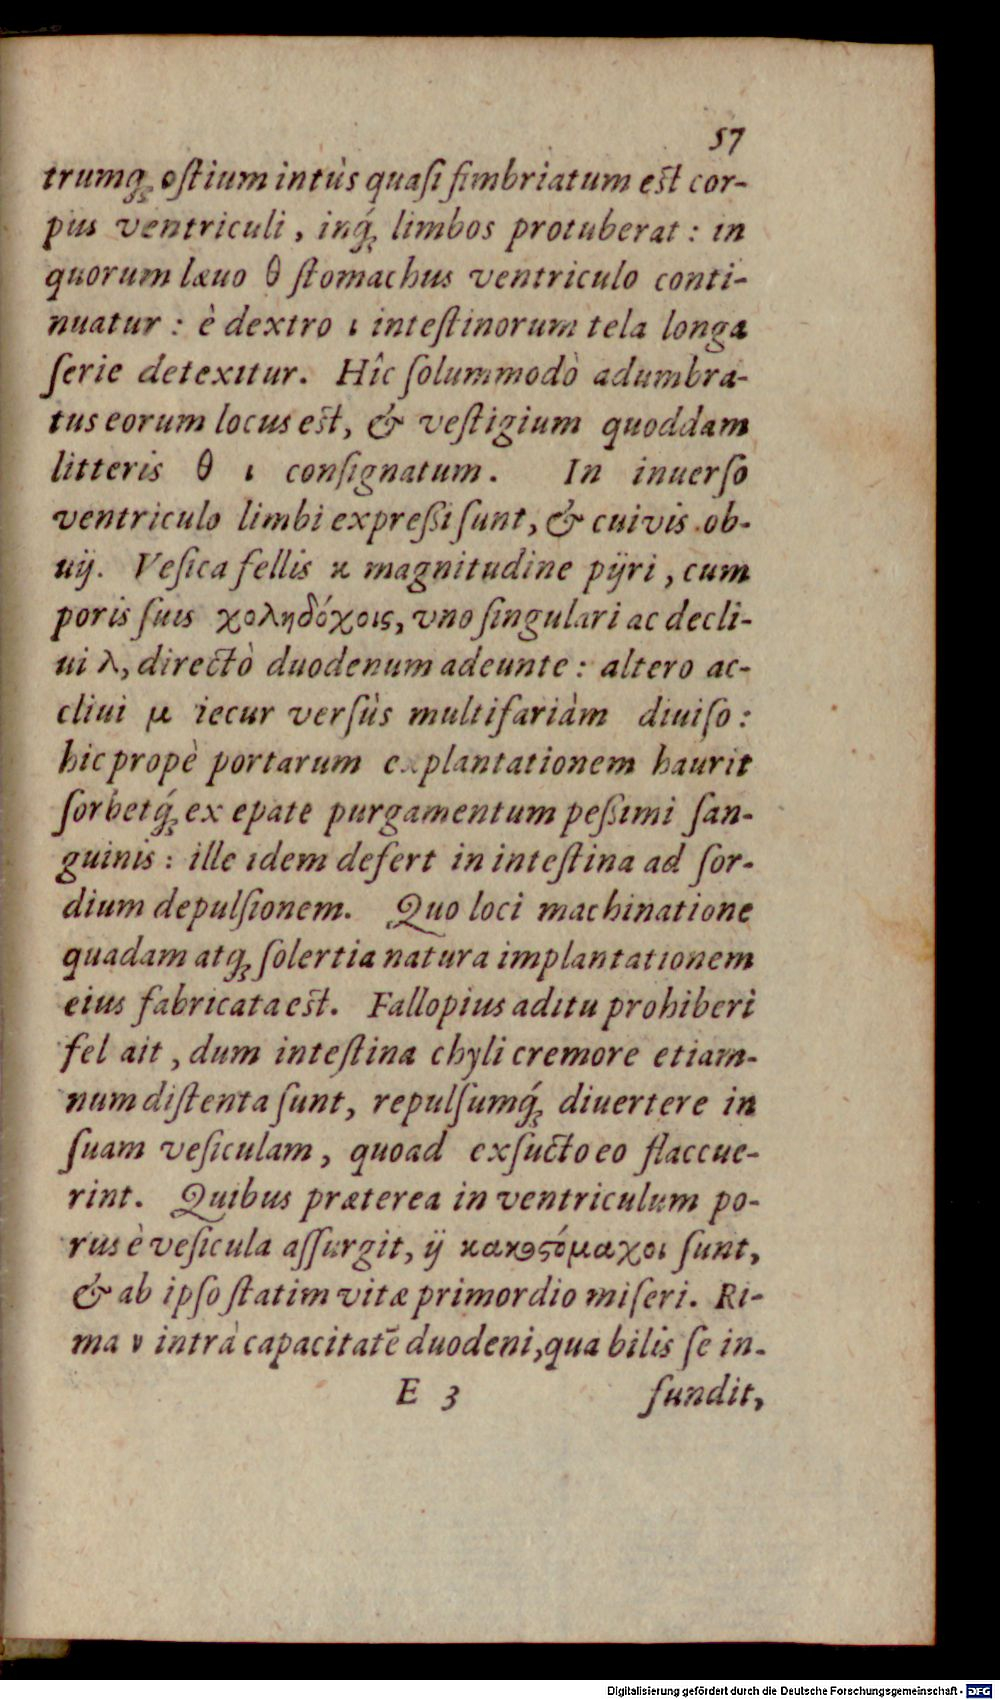 57
trumq́; ostium intùs quasi fimbriatum est cor-
pus ventriculi, inq́; limbos protuberat: in
quorum læuo θ stomachus ventriculo conti-
nuatur: è dextro ι intestinorum tela longa
serie detexitur. Hîc solummodò adumbra-
tus eorum locus est, & vestigium quoddam
litteris θ ι consignatum. In inuerso
ventriculo limbi expreßi sunt, & cuivis ob-
uij. Vesica fellis ϰ magnitudine pyri, cum
poris suis χοληδόχοις, vno singulari ac decli-
ui λ, directò duodenum adeunte: altero ac-
cliui μ iecur versùs multifariàm diuiso:
hic propè portarum explantationem haurit
sorbetq́; ex epate purgamentum peßimi san-
guinis: ille idem defert in intestina ad sor-
dium depulsionem. Quo loci machinatione
quadam atq; solertia natura implantationem
eius fabricata est. Fallopius aditu prohiberi
fel ait, dum intestina chyli cremore etiam-
num distenta sunt, repulsumq́; diuertere in
suam vesiculam, quoad exsucto eo flaccue-
rint. Quibus præterea in ventriculum po-
rus è vesicula assurgit, ij κακοϛόμαχοι sunt,
& ab ipso statim vitæ primordio miseri. Ri-
ma ν intrà capacitatē duodeni, qua bilis se in-
E 3 fundit,
Digitalisierung gefördert durch die Deutsche Forschungsgemeinschaft - DFG